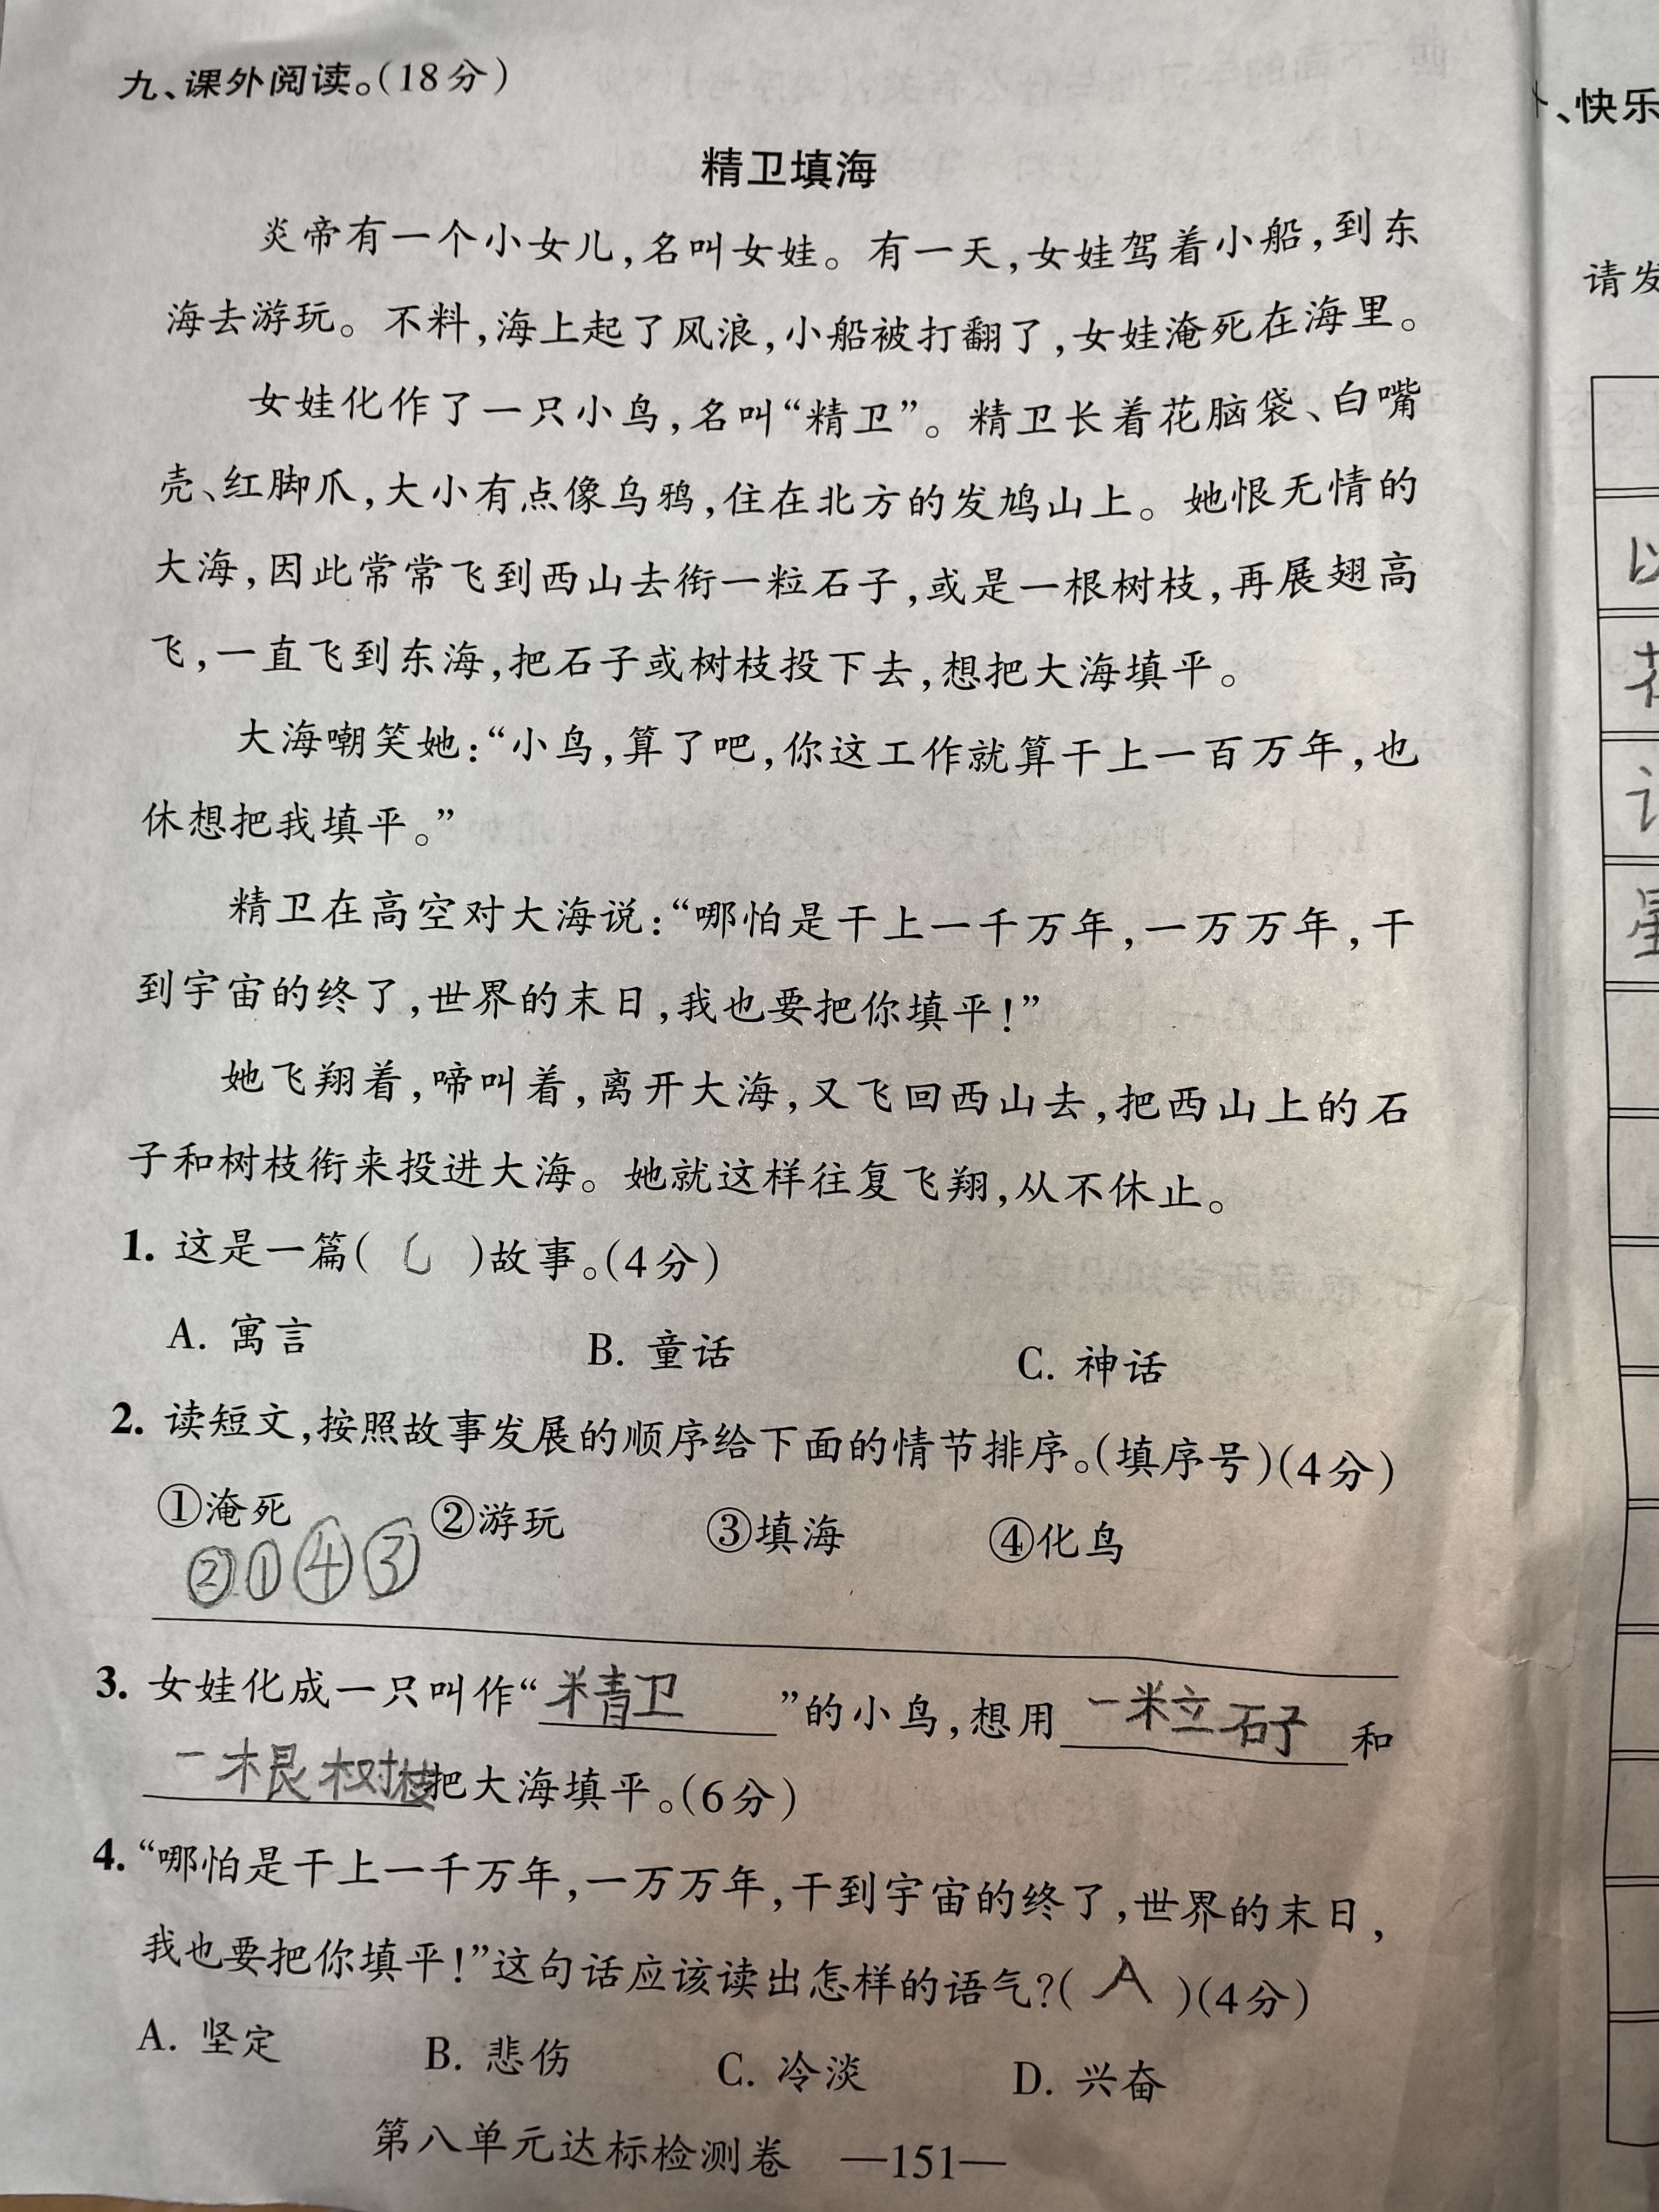 九、课外阅读。(18分)
精卫填海
炎帝有一个小女儿,名叫女娃。有一天,女娃驾着小船,到东
海去游玩。不料,海上起了风浪,小船被打翻了,女娃淹死在海里。
女娃化作了一只小鸟,名叫“精卫”。精卫长着花脑袋、白嘴
壳、红脚爪,大小有点像乌鸦,住在北方的发鸠山上。她恨无情的
大海,因此常常飞到西山去衔一粒石子,或是一根树枝,再展翅高
飞,一直飞到东海,把石子或树枝投下去,想把大海填平。
大海嘲笑她:“小鸟,算了吧,你这工作就算干上一百万年,也
休想把我填平。”
精卫在高空对大海说:“哪怕是干上一千万年,一万万年,干
到宇宙的终了,世界的末日,我也要把你填平!”
她飞翔着,啼叫着,离开大海,又飞回西山去,把西山上的石
子和树枝衔来投进大海。她就这样往复飞翔,从不休止。
1. 这是一篇( C )故事。(4分)
A. 寓言 B. 童话 C. 神话
2. 读短文,按照故事发展的顺序给下面的情节排序。(填序号)(4分)
①淹死 ②游玩 ③填海 ④化鸟
②①④③
3. 女娃化成一只叫作“精卫”的小鸟,想用一粒石子和
一根树枝把大海填平。(6分)
4. “哪怕是干上一千万年,一万万年,干到宇宙的终了,世界的末日,
我也要把你填平!”这句话应该读出怎样的语气?( A )(4分)
A. 坚定 B. 悲伤 C. 冷淡 D. 兴奋
第八单元达标检测卷 —151—
、快乐
请发
以
星